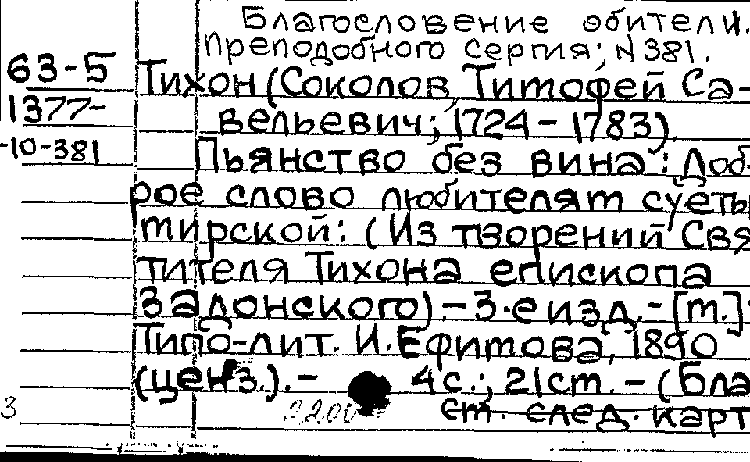 Благословение обители.
Преподобного Сергия; N 381.
63-5
1377-
-10-381
Тихон (Соколов, Тимофей Са-
вельевич; 1724 - 1783).
Пьянство без вина: Доб-
рое слово любителям суеты
мирской: (Из творений Свя
тителя Тихона епископа
Задонского) - 3-е изд. - [м.]:
Типо-лит. И. Ефимова, 1890
(ценз.). - 4 с.; 21 см. - (Бла
3
см. след. карт